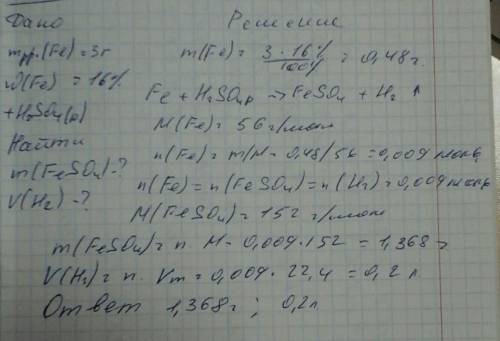 Дано
mр.(Fe) = 3г
ω(Fe) = 16%
+ H₂SO₄(р)
Найти
m(FeSO₄) - ?
V(H₂) - ?
Решение
m(Fe) = 3 · 16% / 100% = 0,48г.
Fe + H₂SO₄р → FeSO₄ + H₂ ↑
M(Fe) = 56 г/моль
n(Fe) = m/M = 0,48/56 = 0,009 моль
n(Fe) = n(FeSO₄) = n(H₂) = 0,009 моль
M(FeSO₄) = 152 г/моль
m(FeSO₄) = n · M = 0,009 · 152 = 1,368 г
V(H₂) = n · Vm = 0,009 · 22,4 = 0,2 л
Ответ 1,368г ; 0,2л